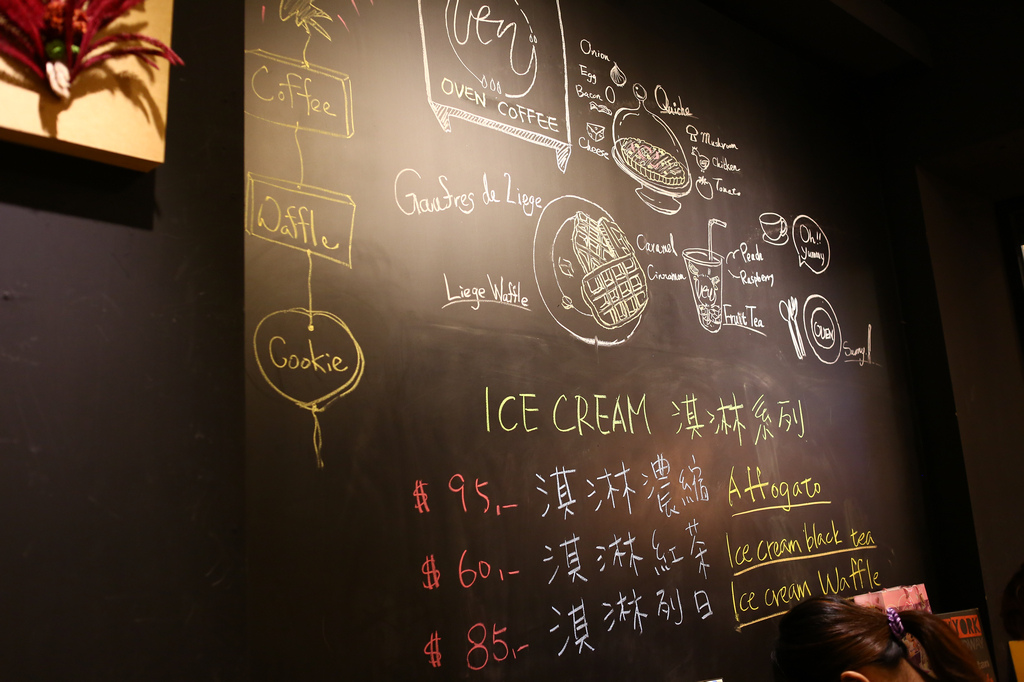 Coffee
Waffle
Cookie
Oven
OVEN COFFEE
Onion
Egg
Bacon
Cheese
Quiche
Mushroom
Chicken
Tomato
Gaufres de Liège
Liege Waffle
Caramel
Cinnamon
Oven
Peach
Raspberry
Fruit Tea
Oh!!
Yummy
OVEN
ICE CREAM 淇淋系列
$ 95,- 淇淋濃縮 Affogato
$ 60,- 淇淋紅茶 Ice cream black tea
$ 85,- 淇淋列日 Ice cream Waffle
YORK